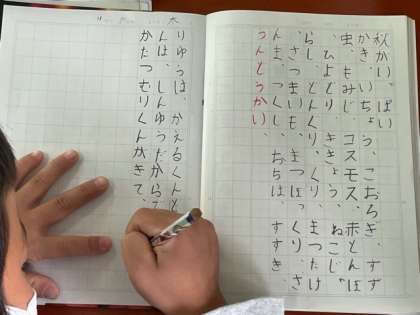 秋がいっぱい
かき、いちょう、こおろぎ、すず
虫、もみじ、コスモス、赤とんぼ
、ひよどり、ききょう、ねこじゃ
らし、どんぐり、くり、まつたけ
、さつまいも、まつぼっくり、さ
んま、つくし、おちば、すすき、
うんどうかい、
りゆうは、かえるくんと
んは、しんゆうだからで
かたつむりくんがきて、